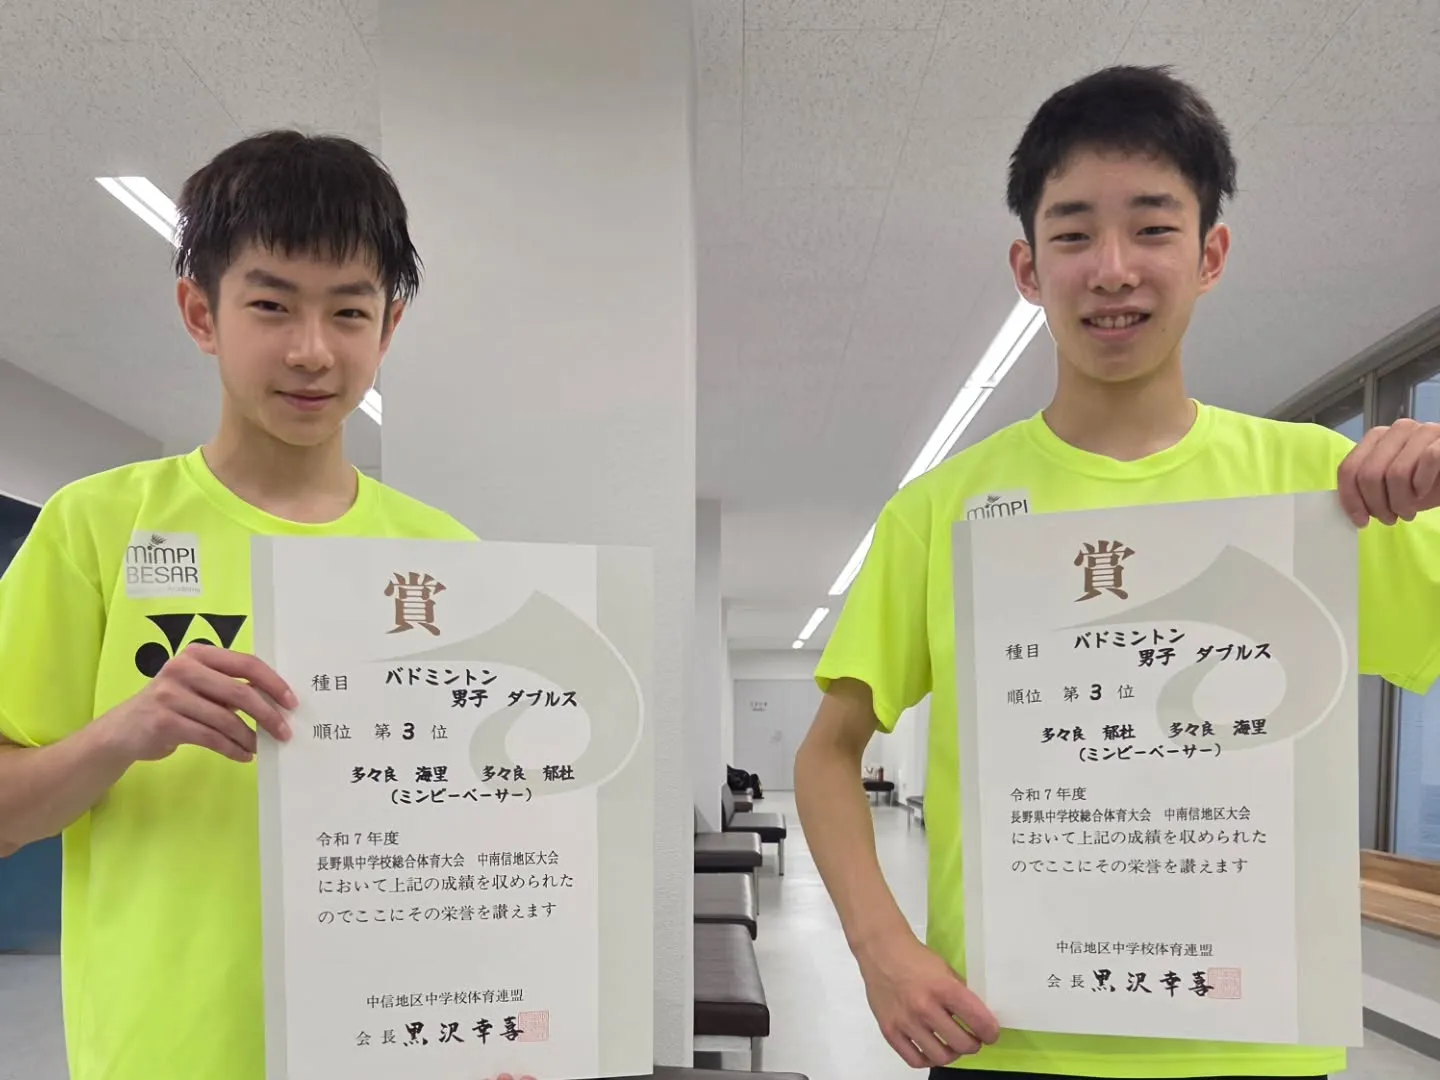 MIMPI
BESAR
賞
種目 バドミントン
男子 ダブルス
順位 第 3 位
多々良 海里 多々良 郁杜
(ミンピーベーサー)
令和7年度
長野県中学校総合体育大会 中南信地区大会
において上記の成績を収められた
のでここにその栄誉を讃えます
中信地区中学校体育連盟
会長 黒沢幸喜
MIMPI
賞
種目 バドミントン
男子 ダブルス
順位 第 3 位
多々良 郁杜 多々良 海里
(ミンピーベーサー)
令和7年度
長野県中学校総合体育大会 中南信地区大会
において上記の成績を収められた
のでここにその栄誉を讃えます
中信地区中学校体育連盟
会長 黒沢幸喜